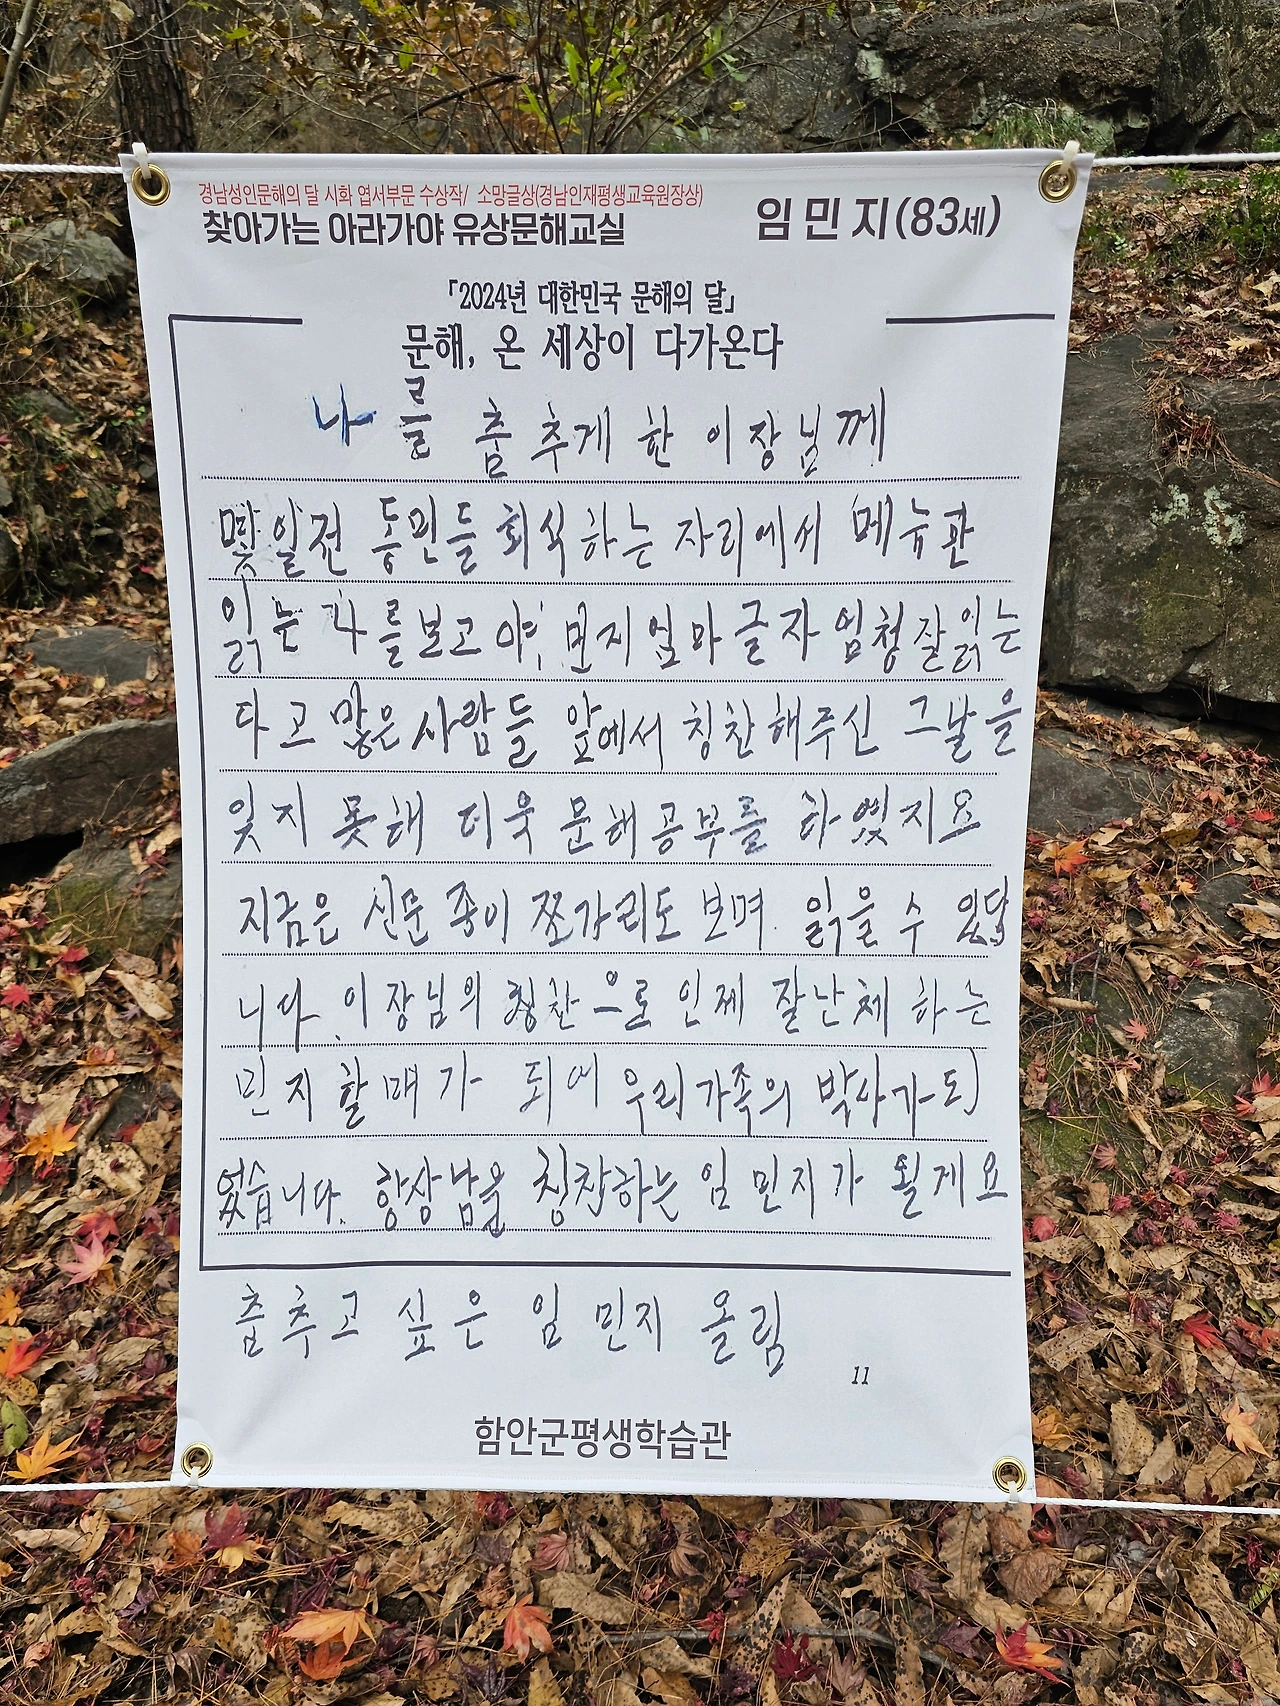 경남성인문해의 달 시화 엽서부문 수상작/ 소망글상(경남인재평생교육원장상)
찾아가는 아라가야 유상문해교실 임민지(83세)
「2024년 대한민국 문해의 달」
문해, 온 세상이 다가온다
나를 춤추게 한 이장님께
몇일전 동민들 회식하는 자리에서 메뉴판
읽는 나를보고 야! 민지엄마 글자 엄청잘읽는
다고 많은사람들 앞에서 칭찬해주신 그날을
잊지 못해 더욱 문해공부를 하였지요
지금은 신문 종이 쪼가리도 보며 읽을 수 있답
니다. 이장님의 칭찬으로 인제 잘난체 하는
민지할매가 되어 우리가족의 박사가되
었습니다. 항상남을 칭찬하는 임민지가 될게요
춤추고 싶은 임민지 올림
11
함안군평생학습관